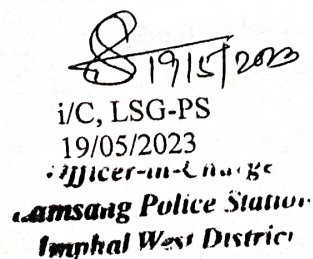 19/5/2023
i/C, LSG-PS
19/05/2023
Officer-in-Charge
Lamsang Police Station
Imphal West District